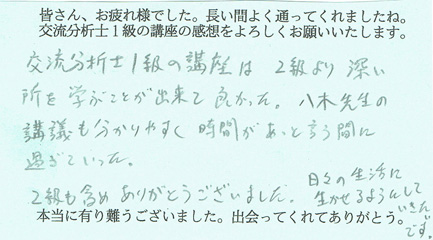 皆さん、お疲れ様でした。長い間よく通ってくれましたね。
交流分析士1級の講座の感想をよろしくお願いいたします。
交流分析士1級の講座は 2級より深い
所を学ぶことが出来て良かった。八木先生の
講議も分かりやすく時間があっと言う間に
過ぎていった。
2級も含めありがとうございました。日々の生活に
生かせるようにして
いきたい
です。
本当に有り難うございました。出会ってくれてありがとう。